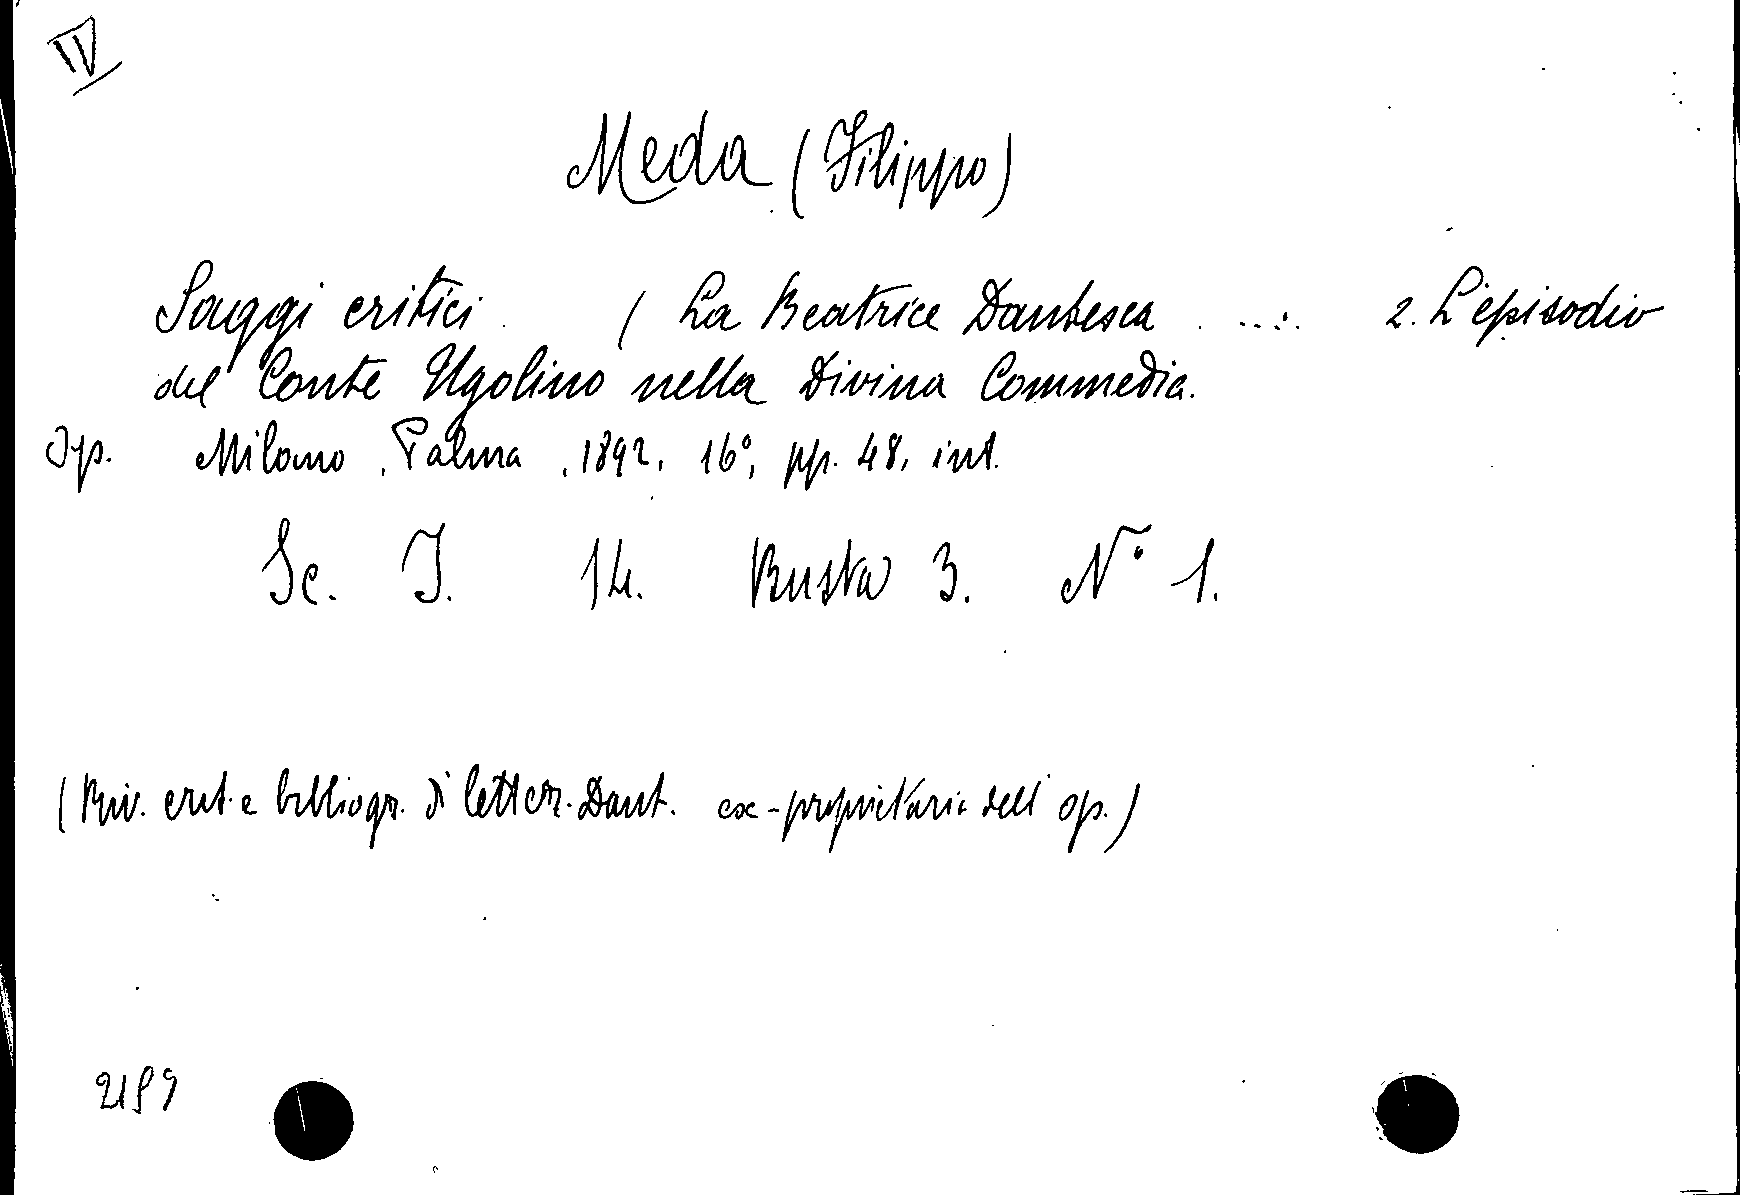 IV
Meda (Filippo)
Saggi critici. ( La Beatrice Dantesca ..... 2. L'episodio
del Conte Ugolino nella Divina Commedia.
Op. Milano, Palma, 1892, 16°, pp. 48, int.
Sc. I. 14. Busta 3. N° 1.
(Riv. crit. e bibliogr. di letter. Dant. ex-proprietaria dell'op.)